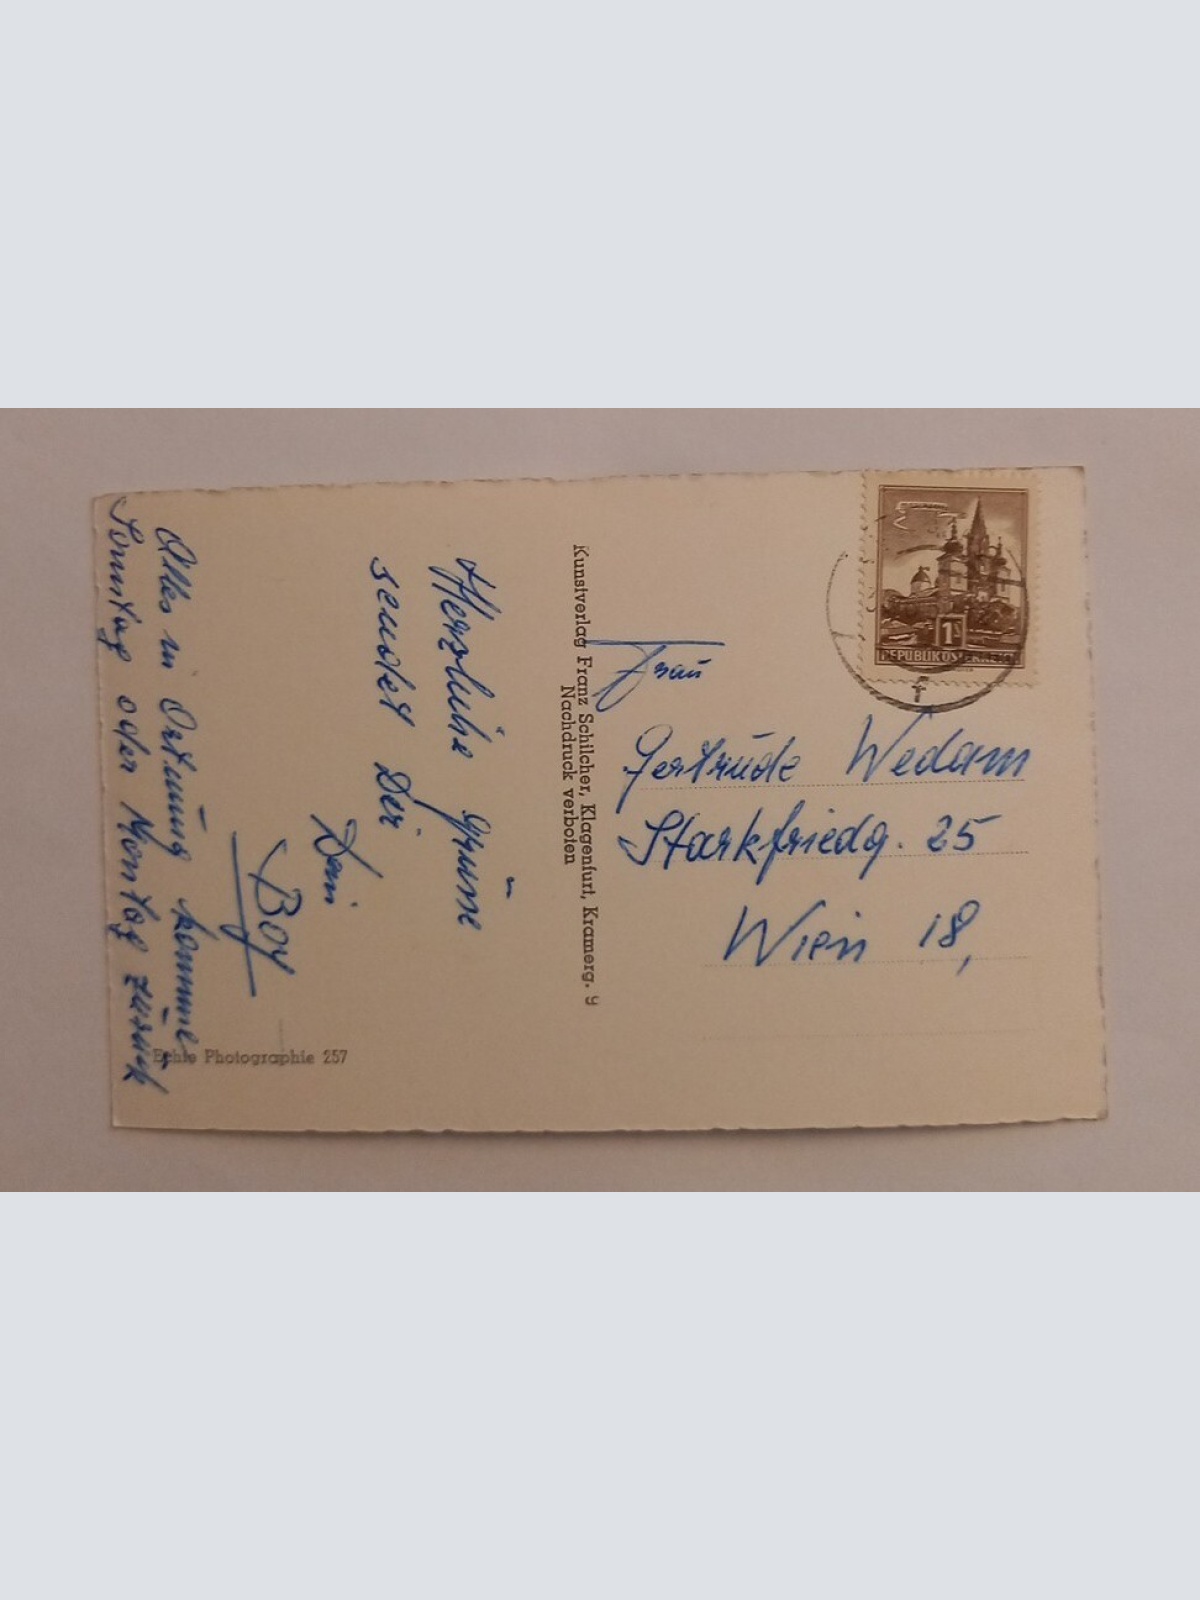 Herzliche Grüsse
sendet Dir
Dein
Boy
Alles in Ortnung komme
Sonntag oder Montag zurück
Echte Photographie 257
Kunstverlag Franz Schilcher, Klagenfurt, Kramerg. 9
Nachdruck verboten
1S
REPUBLIK ÖSTERREICH
f
Frau
Gertrude Wedam
Starkfriedg. 25
Wien 18,